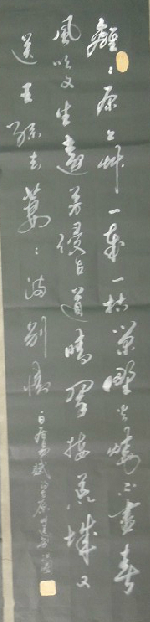 離〻原上艸一歲一枯榮野火燒不盡春
風吹又生遠芳侵古道晴翠接荒城又
送王孫去萋〻滿別情
白居易